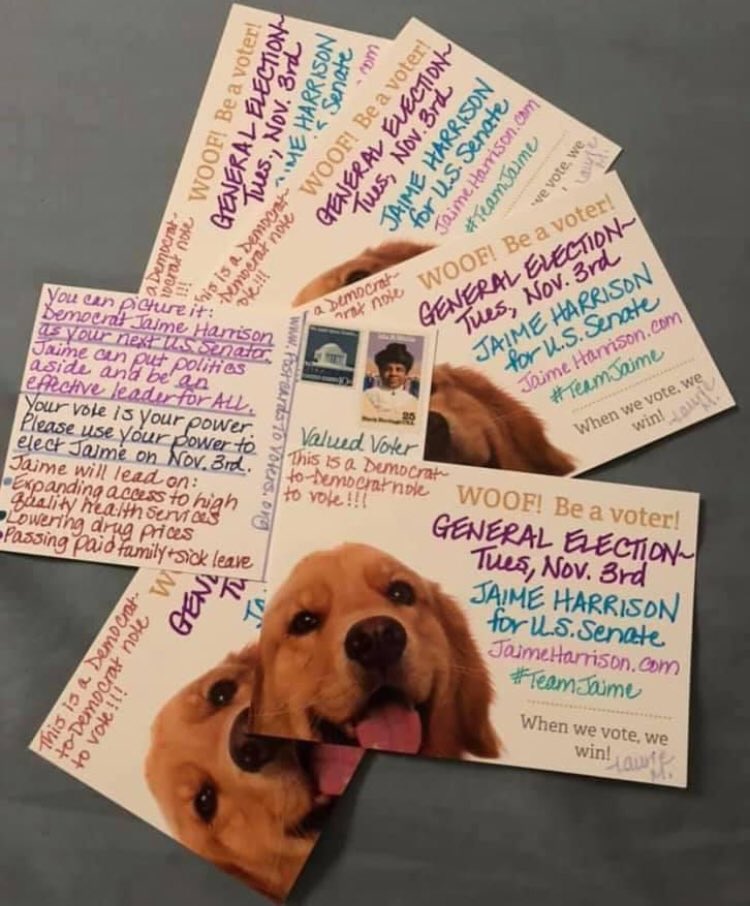 WOOF! Be a voter!
GENERAL ELECTION~
Tues, Nov. 3rd
JAIME HARRISON
Senate
.com
a Democrat-
ocrat note
!!!
WOOF! Be a voter!
GENERAL ELECTION~
Tues, Nov. 3rd
JAIME HARRISON
for U.S. Senate
JaimeHarrison.com
#TeamJaime
we vote, we
Laurie
M.
This is a Democrat-
Democrat note
vote!!!
WOOF! Be a voter!
GENERAL ELECTION~
Tues, Nov. 3rd
JAIME HARRISON
for U.S. Senate
JaimeHarrison.com
#TeamJaime
When we vote, we
win! Laurie
M.
a Democrat-
crat note
You can picture it:
Democrat Jaime Harrison
as your next U.S. Senator.
Jaime can put politics
aside and be an
effective leader for ALL.
Your vote is your power
Please use your power to
elect Jaime on Nov. 3rd.
Jaime will lead on:
•Expanding access to high
quality health services
•Lowering drug prices
•Passing paid family+sick leave
www.PostcardsToVoters.org
25
Valued Voter
This is a Democrat-
to-Democrat note
to vote!!!
WOOF! Be a voter!
GENERAL ELECTION~
Tues, Nov. 3rd
JAIME HARRISON
for U.S. Senate
JaimeHarrison.com
#TeamJaime
When we vote, we
win! Laurie
M.
This is a Democrat-
to-Democrat note
to vote!!!
W
GEN
Tu
JA